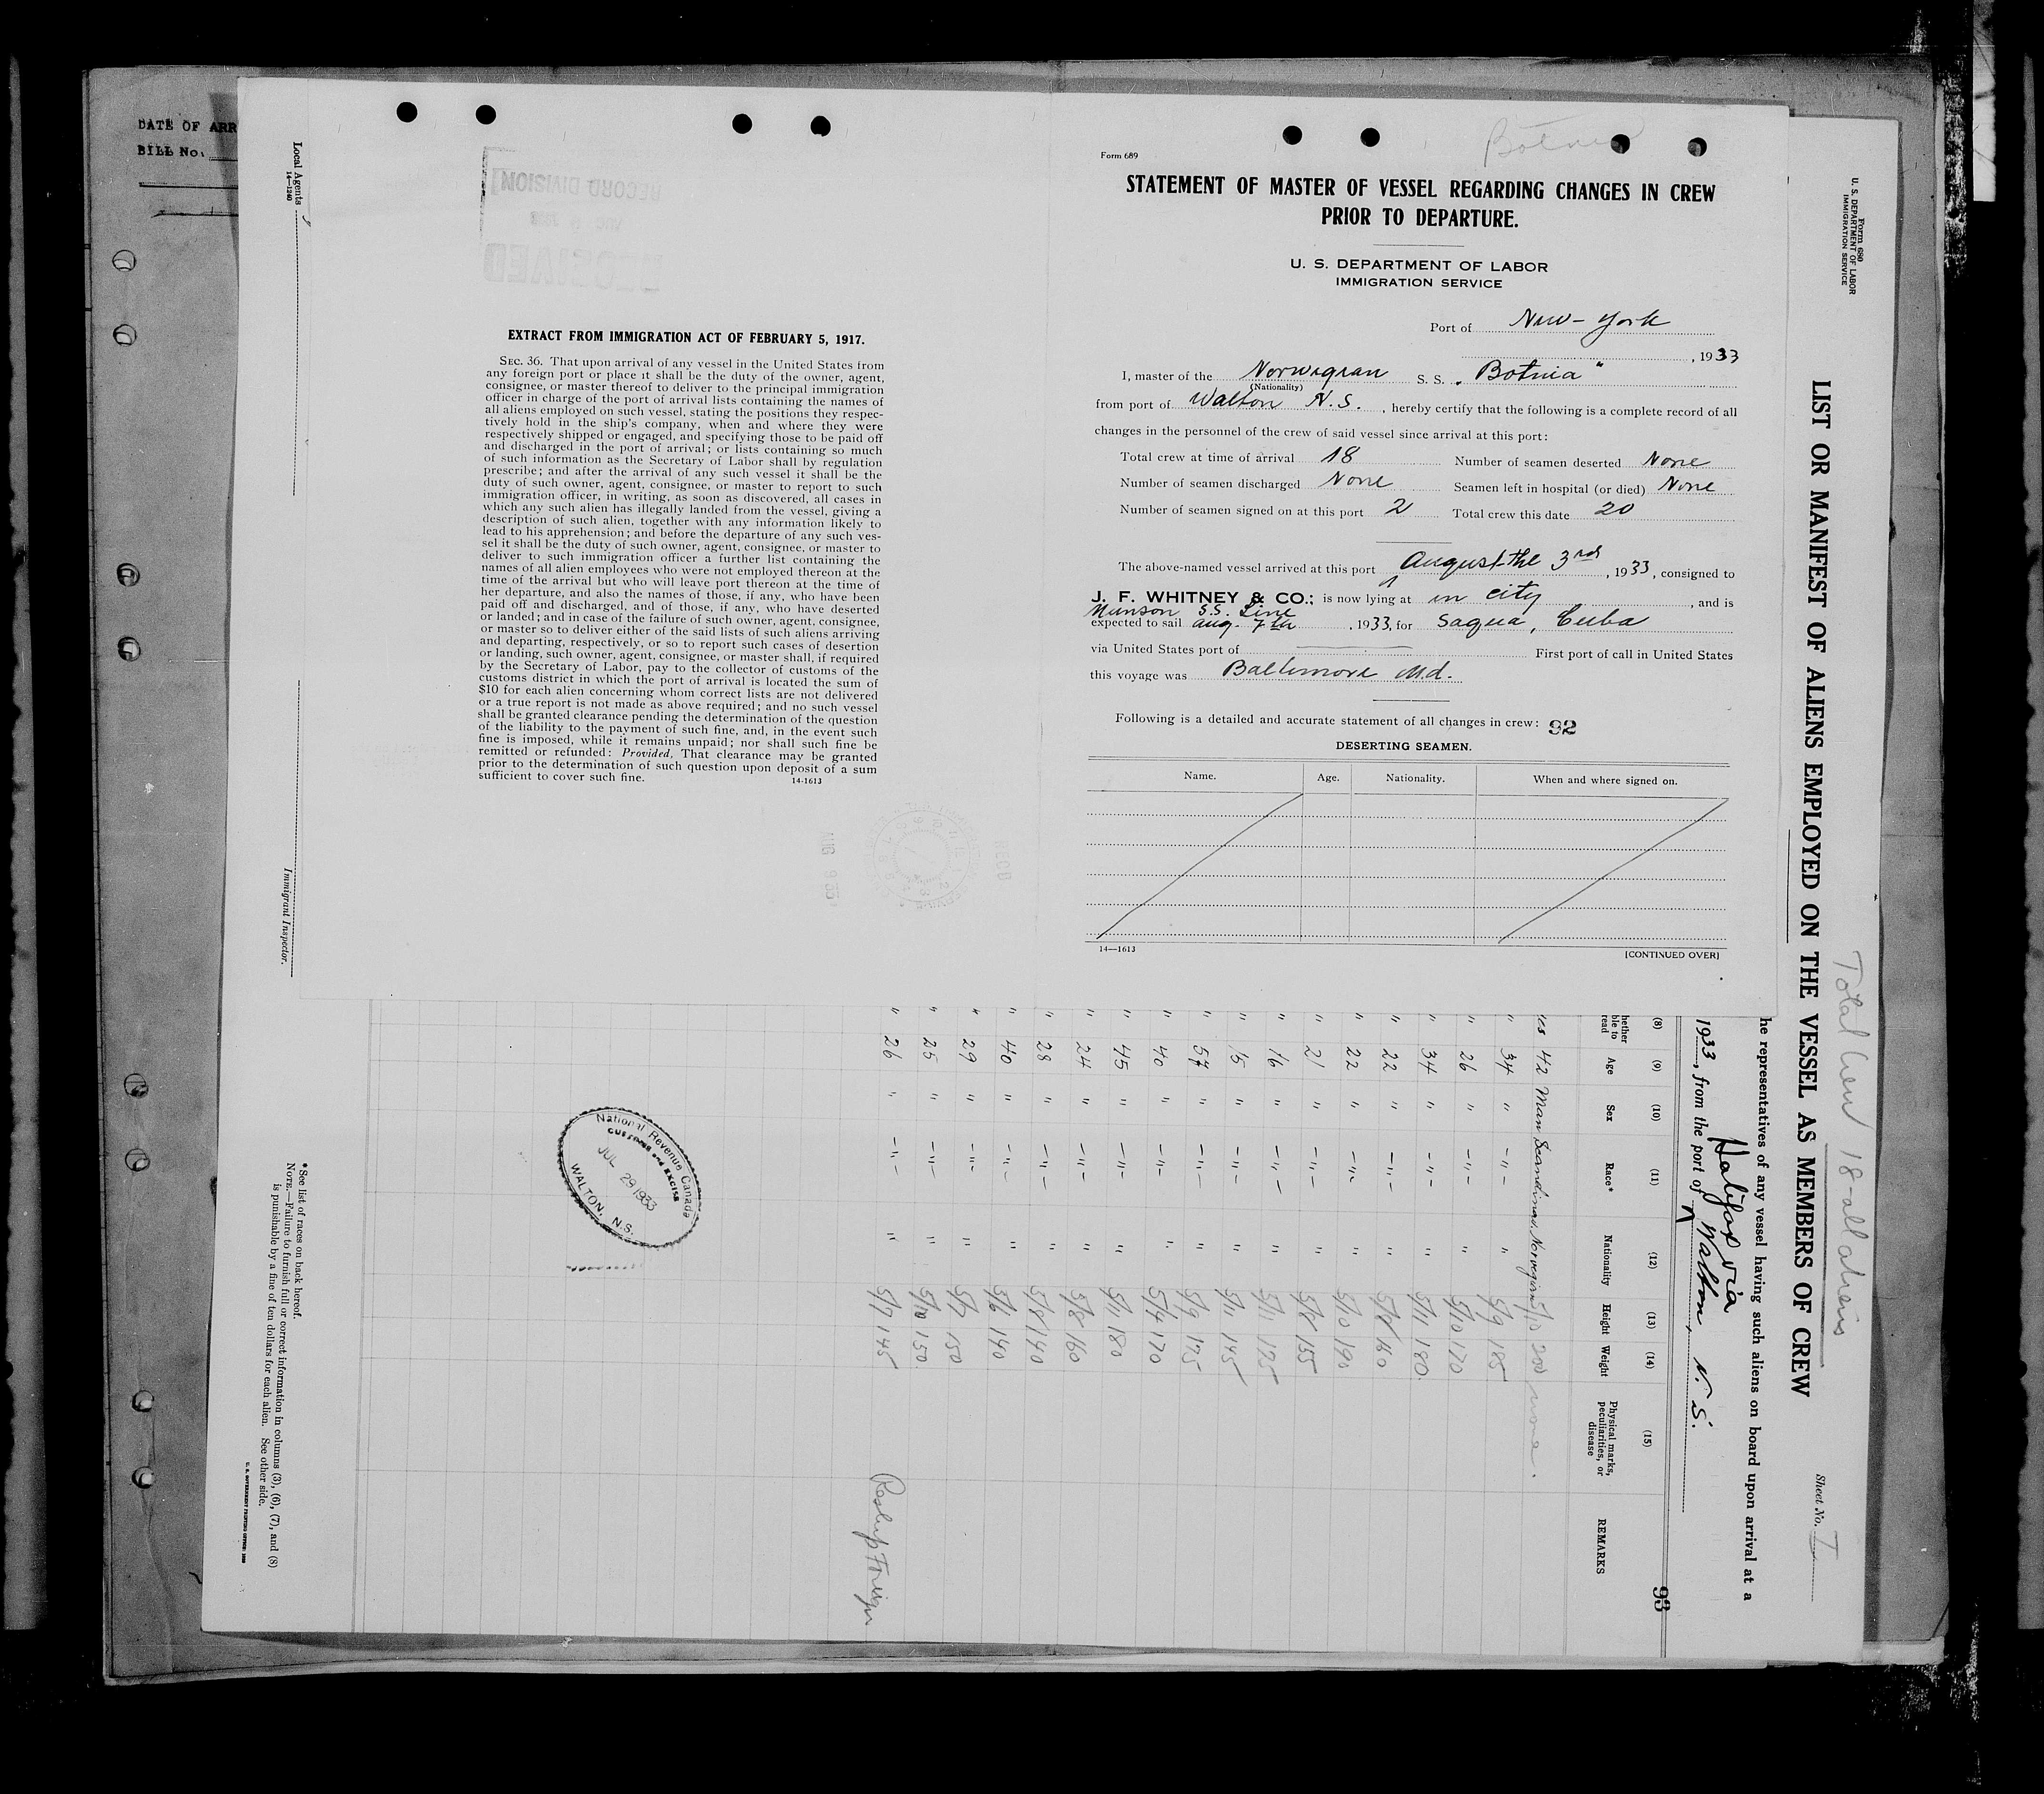 DATE OF ARR
BILL No.
Local Agents
14-1240
Immigrant Inspector.
RECEIVED
AUG 9 1933
RECORD DIVISION
EXTRACT FROM IMMIGRATION ACT OF FEBRUARY 5, 1917.
SEC. 36. That upon arrival of any vessel in the United States from
any foreign port or place it shall be the duty of the owner, agent,
consignee, or master thereof to deliver to the principal immigration
officer in charge of the port of arrival lists containing the names of
all aliens employed on such vessel, stating the positions they respec-
tively hold in the ship's company, when and where they were
respectively shipped or engaged, and specifying those to be paid off
and discharged in the port of arrival; or lists containing so much
of such information as the Secretary of Labor shall by regulation
prescribe; and after the arrival of any such vessel it shall be the
duty of such owner, agent, consignee, or master to report to such
immigration officer, in writing, as soon as discovered, all cases in
which any such alien has illegally landed from the vessel, giving a
description of such alien, together with any information likely to
lead to his apprehension; and before the departure of any such ves-
sel it shall be the duty of such owner, agent, consignee, or master to
deliver to such immigration officer a further list containing the
names of all alien employees who were not employed thereon at the
time of the arrival but who will leave port thereon at the time of
her departure, and also the names of those, if any, who have been
paid off and discharged, and of those, if any, who have deserted
or landed; and in case of the failure of such owner, agent, consignee,
or master so to deliver either of the said lists of such aliens arriving
and departing, respectively, or so to report such cases of desertion
or landing, such owner, agent, consignee, or master shall, if required
by the Secretary of Labor, pay to the collector of customs of the
customs district in which the port of arrival is located the sum of
$10 for each alien concerning whom correct lists are not delivered
or a true report is not made as above required; and no such vessel
shall be granted clearance pending the determination of the question
of the liability to the payment of such fine, and, in the event such
fine is imposed, while it remains unpaid; nor shall such fine be
remitted or refunded: Provided, That clearance may be granted
prior to the determination of such question upon deposit of a sum
sufficient to cover such fine. 14-1613
Botnia
Form 689
STATEMENT OF MASTER OF VESSEL REGARDING CHANGES IN CREW
PRIOR TO DEPARTURE.
U. S. DEPARTMENT OF LABOR
IMMIGRATION SERVICE
Port of New-York
, 1933
I, master of the Norwegian S. S. "Botnia"
(Nationality)
from port of Walton N.S. , hereby certify that the following is a complete record of all
changes in the personnel of the crew of said vessel since arrival at this port:
Total crew at time of arrival 18 Number of seamen deserted None
Number of seamen discharged None Seamen left in hospital (or died) None
Number of seamen signed on at this port 2 Total crew this date 20
The above-named vessel arrived at this port August the 3rd , 1933, consigned to
J. F. WHITNEY & CO.; is now lying at in city , and is
Munson S.S. Line
expected to sail Aug. 7th , 1933, for Sagua, Cuba
via United States port of First port of call in United States
this voyage was Baltimore Md.
Following is a detailed and accurate statement of all changes in crew: 92
DESERTING SEAMEN.
Name. Age. Nationality. When and where signed on.
14—1613 [CONTINUED OVER]
Form 680
U. S. DEPARTMENT OF LABOR
IMMIGRATION SERVICE
Total Crew 18-all aliens
Sheet No. I
LIST OR MANIFEST OF ALIENS EMPLOYED ON THE VESSEL AS MEMBERS OF CREW
he representatives of any vessel having such aliens on board upon arrival at a
Halifax via
1933, from the port of Walton, N.S.
93
(8) (9) (10) (11) (12) (13) (14) (15)
hether ble to read Age Sex Race* Nationality Height Weight Physical marks, peculiarities, or disease REMARKS
yes 42 Man Scandinav. Norwegian 5/10 200 none.
" 34 " -"- " 5/9 185
" 26 " -"- " 5/10 170
" 34 " -"- " 5/11 180
" 22 " -"- " 5/8 160
" 22 " -"- " 5/10 190
" 21 " -"- " 5/8 155
" 16 " -"- " 5/11 175
" 15 " -"- " 5/11 145
" 54 " -"- " 5/9 175
" 40 " -"- " 5/4 170
" 45 " -"- " 5/11 180
" 24 " -"- " 5/8 160
" 28 " -"- " 5/8 140
" 40 " -"- " 5/6 140
" 29 " -"- " 5/7 150
" 25 " -"- " 5/10 150
" 26 " -"- " 5/7 145 Reship Foreign
National Revenue Canada
CUSTOMS and EXCISE
JUL 29 1933
WALTON, N.S.
*See list of races on back hereof.
NOTE.—Failure to furnish full or correct information in columns (3), (6), (7), and (8)
is punishable by a fine of ten dollars for each alien. See other side.
U. S. GOVERNMENT PRINTING OFFICE